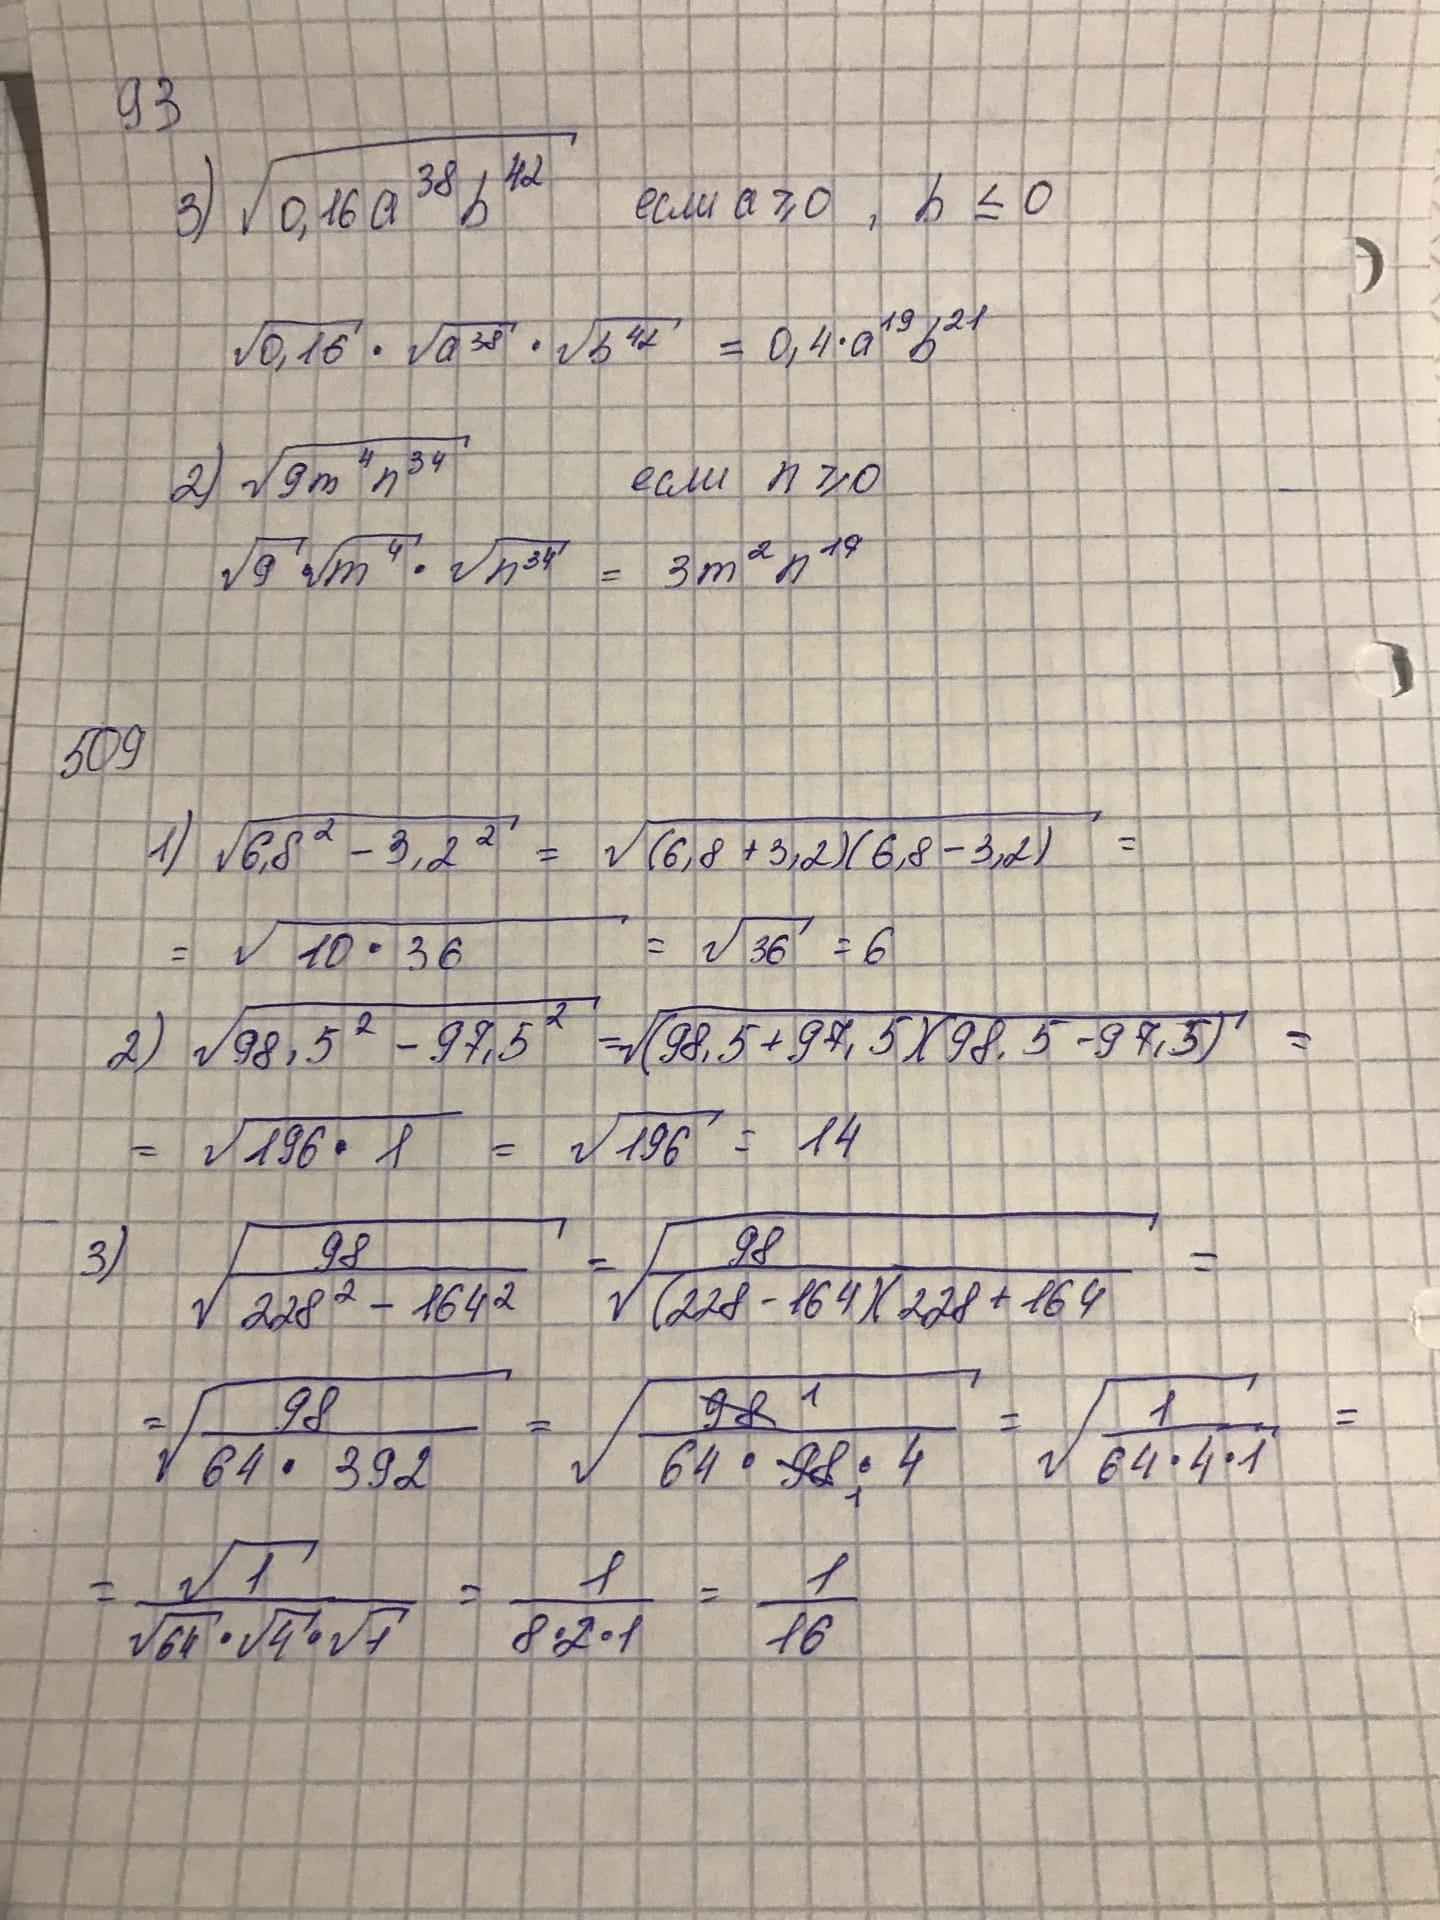 93
3) √0,16a³⁸b⁴² если a ⩾ 0 , b ≤ 0
√0,16 · √a³⁸ · √b⁴² = 0,4·a¹⁹b²¹
2) √9m⁴n³⁴ если n ⩾ 0
√9 · √m⁴ · √n³⁴ = 3m²n¹⁷
509
1) √6,8² - 3,2² = √(6,8+3,2)(6,8-3,2) =
= √10 · 36 = √36 = 6
2) √98,5² - 97,5² = √(98,5+97,5)(98.5-97,5) =
= √196 · 1 = √196 = 14
3) √98/(228² - 164²) = √98/((228-164)(228+164) =
= √98/(64 · 392) = √98 1/(64 · 98 1 · 4) = √1/(64·4·1) =
= √1/(√64·√4·√1) = 1/(8·2·1) = 1/16